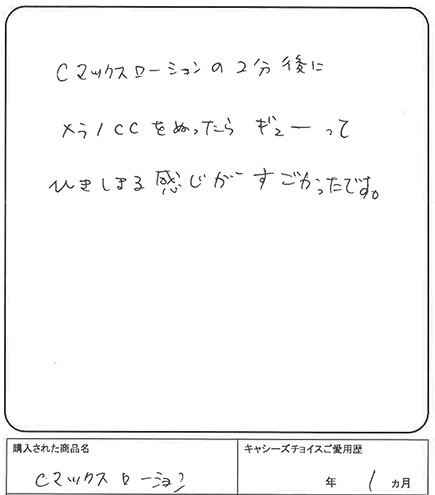 Cマックスローションの2分後に
メラノCCをぬったらギューって
ひきしまる感じがすごかったです。
購入された商品名
キャシーズチョイスご愛用歴
Cマックスローション
年 1 ヵ月